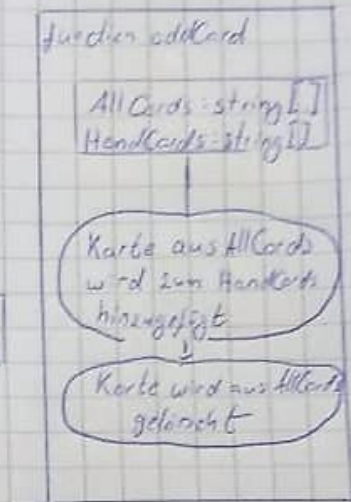 function addCard
AllCards: string[]
HandCards: string[]
Karte aus AllCards
wird zum HandCards
hinzugefügt
Karte wird aus AllCards
gelöscht